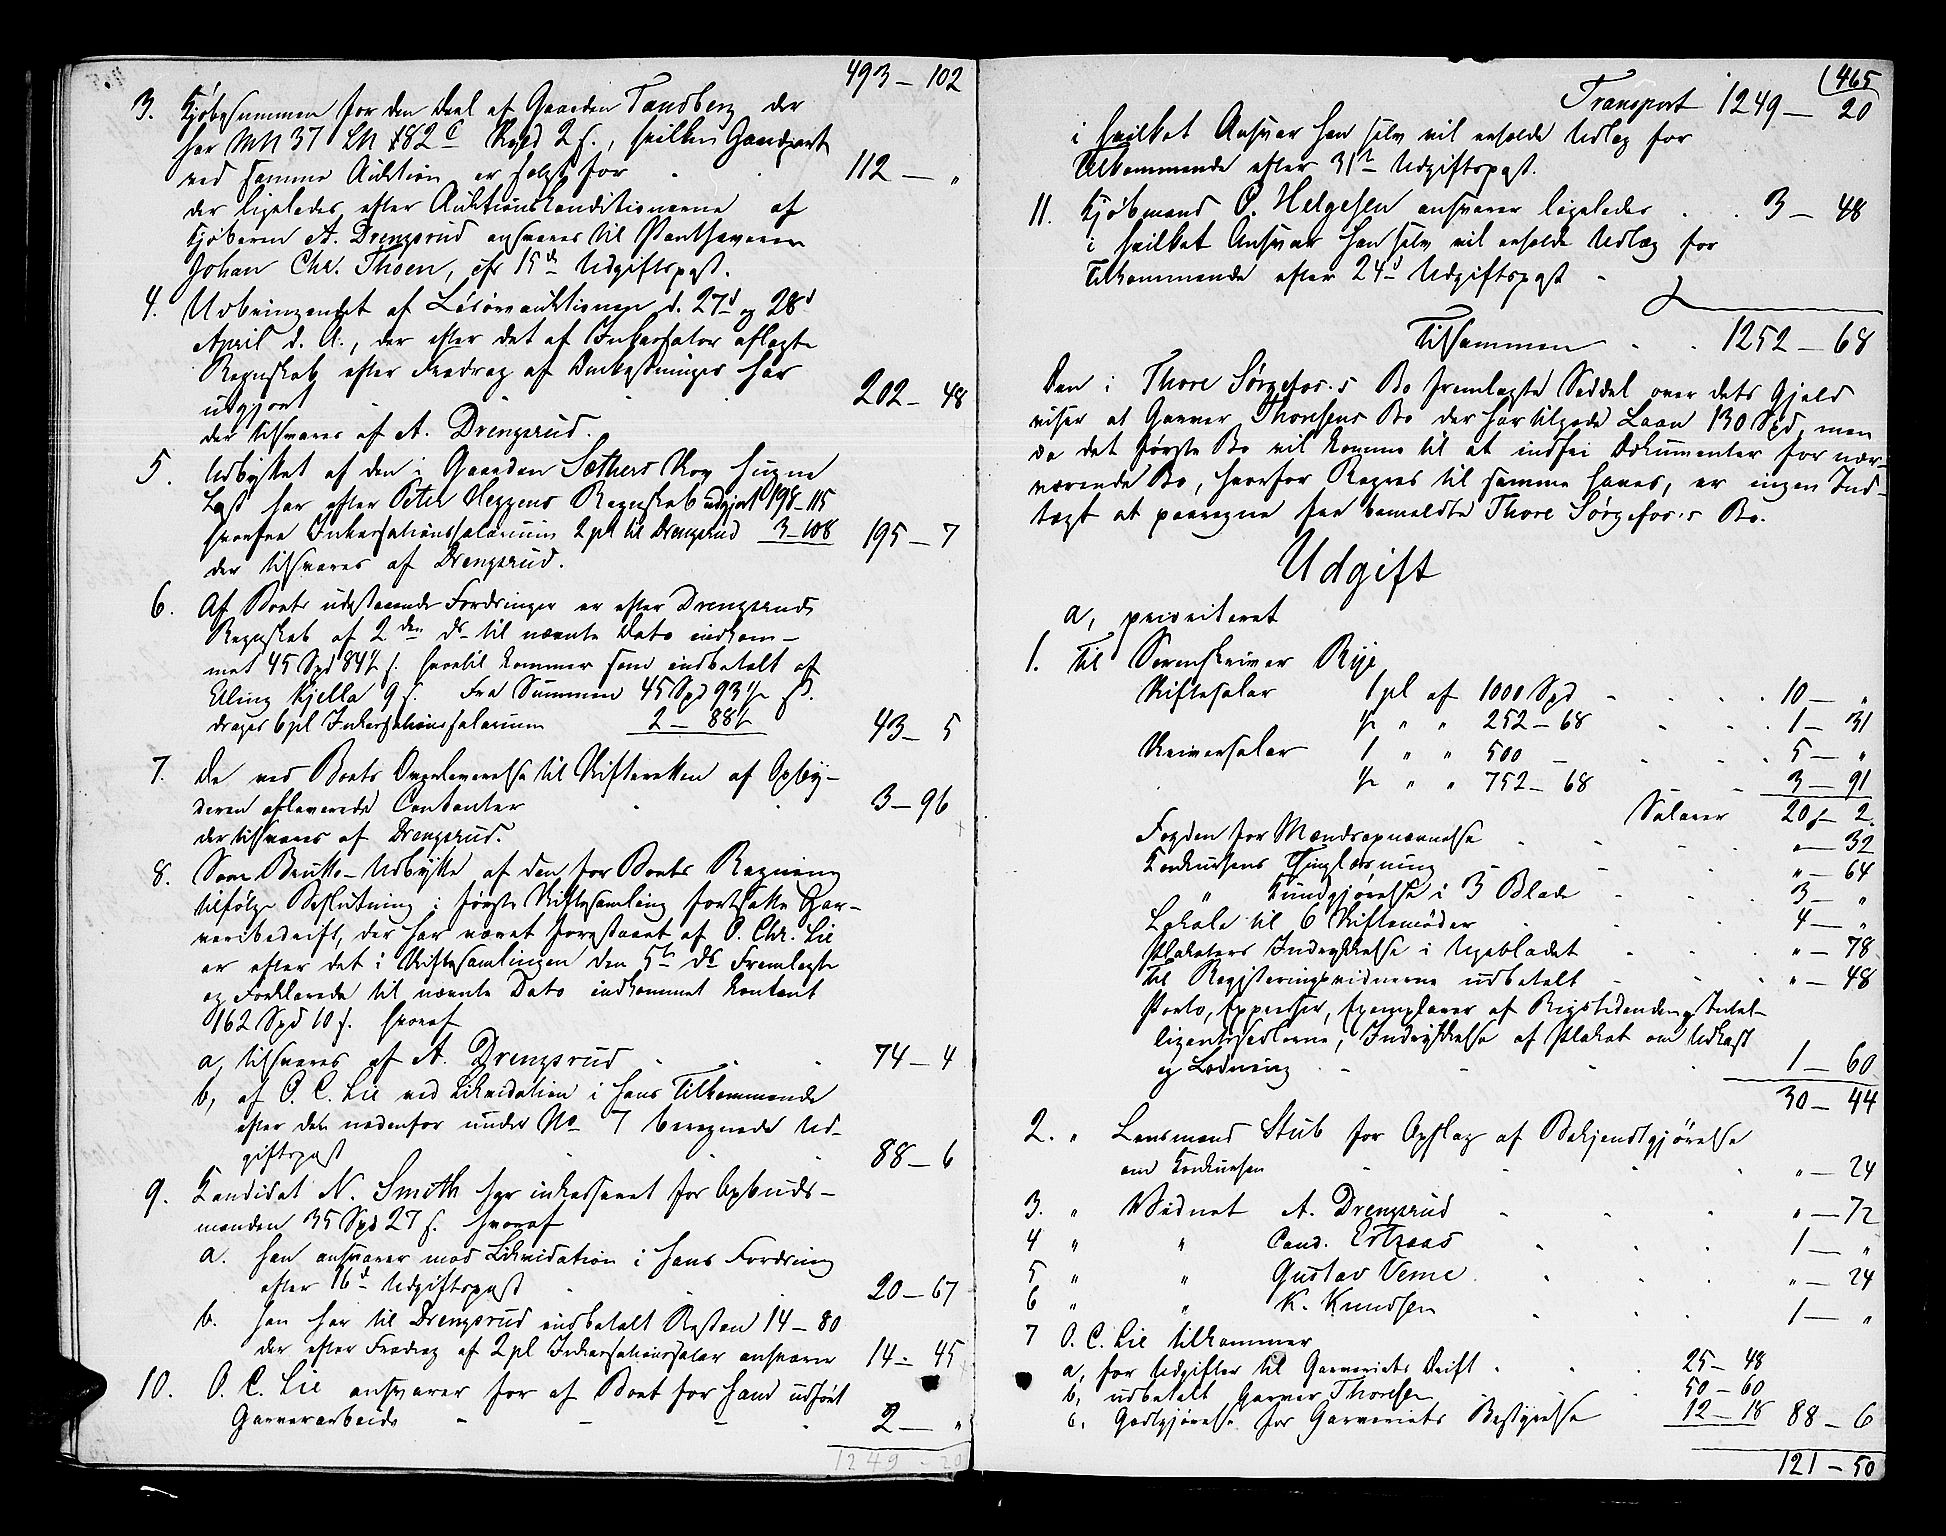 493 – 102
3. Kjøbesummen for den Deel af Gaarden Tandberg der
har MN 37 LN 182 c Skyld 2 s., hvilken Gaardpart
ved samme Auktion er solgt for 112 – "
der ligeledes efter Auktionskonditionerne af
Kjøberen A. Drengsrud ansvares til Panthaveren
Johan Chr. Thoen, cfr 15de Udgiftspost.
4. Udbringendet af Løsøreauktionen d. 27d og 28d
April d. A., der efter det af Inkassator aflagte
Regnskab efter Fradrag af Omkostninger har
udgjort 202 – 48
der tilsvares af A. Drengsrud.
5. Udbyttet af den i Gaarden Sæthers Skov hugne
Last har efter Peter Heggens Regnskab udgjort 198 – 115
hvorfra Inkassationssalarium 2 pCt til Drengsrud 3 – 108 195 – 7
der tilsvares af Drengsrud.
6. Af Boets udestaaende Fordringer er efter Drengsruds
Regnskab af 2den ds til nævnte Dato indkom-
met 45 Spd 84½ s. hvortil kommer som indbetalt af
Elling Kjella 9 s. Fra Summen 45 Spd 93½ s.
drages 6 pCt Inkassationssalarium 2 – 88½ 43 – 5
7. De ved Boets Overleverelse til Skifteretten af Opby-
deren afleverede Contanter 3 – 96
der tilsvares af Drengsrud.
8. Som Brutto-Udbytte af den for Boets Regning
tilfølge Beslutning i første Skiftesamling fortsatte Gar-
veribedrift, der har været forestaaet af O. Chr. Lie
er efter det i Skiftesamlingen den 5te ds Fremlagte
og Forklarede til nævnte Dato indkommet kontant
162 Spd 10 s. hvoraf
a, tilsvares af A. Drengsrud 74 – 4
b, af O. C. Lie ved Likvidation i hans Tilkommende
efter den nedenfor under No 7 beregnede Ud-
giftspost 88 – 6
9. Kandidat N. Smith har inkasseret for Opbuds-
manden 35 Spd 27 s. hvoraf
a. han ansvarer mod Likvidation i hans Fordring
efter 16d Udgiftspost 20 – 67
b. han har til Drengsrud indbetalt Resten 14 – 80
der efter Fradrag af 2 pCt Inkassationssalar ansvarer 14 – 45
10. O. C. Lie ansvarer for af Boet for ham udført
Garverarbeide 2 – "
1249 – 20
465
Transport 1249 – 20
i hvilket Ansvar han selv vil erholde Udlæg for
Tilkommende efter 31te Udgiftspost.
11. Kjøbmand O. Helgesen ansvarer ligeledes 3 – 48
i hvilket Ansvar han selv vil erholde Udlæg for
Tilkommende efter 24d Udgiftspost
Tilsammen 1252 – 68
Den i Thore Sørgefos.s Bo fremlagte Seddel over dets Gjæld
viser at Garver Thoresens Bo der har tilgode Laan 130 Spd, men
da det første Bo vil komme til at indfri Dokumenter for nær-
værende Bo, hvorfor Regres til samme haves, er ingen Ind-
tægt at paaregne fra bemeldte Thore Sørgefos.s Bo.
Udgift
a, prioriteret
1. Til Sorenskriver Rije
Skiftesalar 1 pCt af 1000 Spd 10 – "
½ " " 252 – 68 1 – 31
Skriversalar 1 " " 500 5 – "
½ " " 752 – 68 3 – 91
Salarer 20 – 2
Fogden for Mændsopnævnelse " – 32
Konkursens Thinglæsning " – 64
" Kundgjørelse i 3 Blade 3 – "
Lokale til 6 Skiftemøder 4 – "
Plakaters Indrykkelse i Ugebladet " – 78
Til Registeringsvidnerne udbetalt " – 48
Porto, Expresser, Exemplarer af Rigstidenden og Intel-
ligentssedlerne, Indrykkelse af Plakat om Udkast
og Lodning 1 – 60
30 – 44
2. " Lensmand Stub for Opslag af Bekjendtgjørelse
om Konkursen " – 24
3. " Vidnet A. Drengsrud " – 72
4 " " Cand. Ertzaas 1 – "
5 " " Gustav Veme " – 24
6 " " K. Knudsen 1 – "
7 O. C. Lie tilkommer
a, for Udgifter til Garveriets Drift 25 – 48
b, udbetalt Garver Thoresen 50 – 60
c, Godtgjørelse for Garveriets Bestyrelse 12 – 18 88 – 6
121 – 50